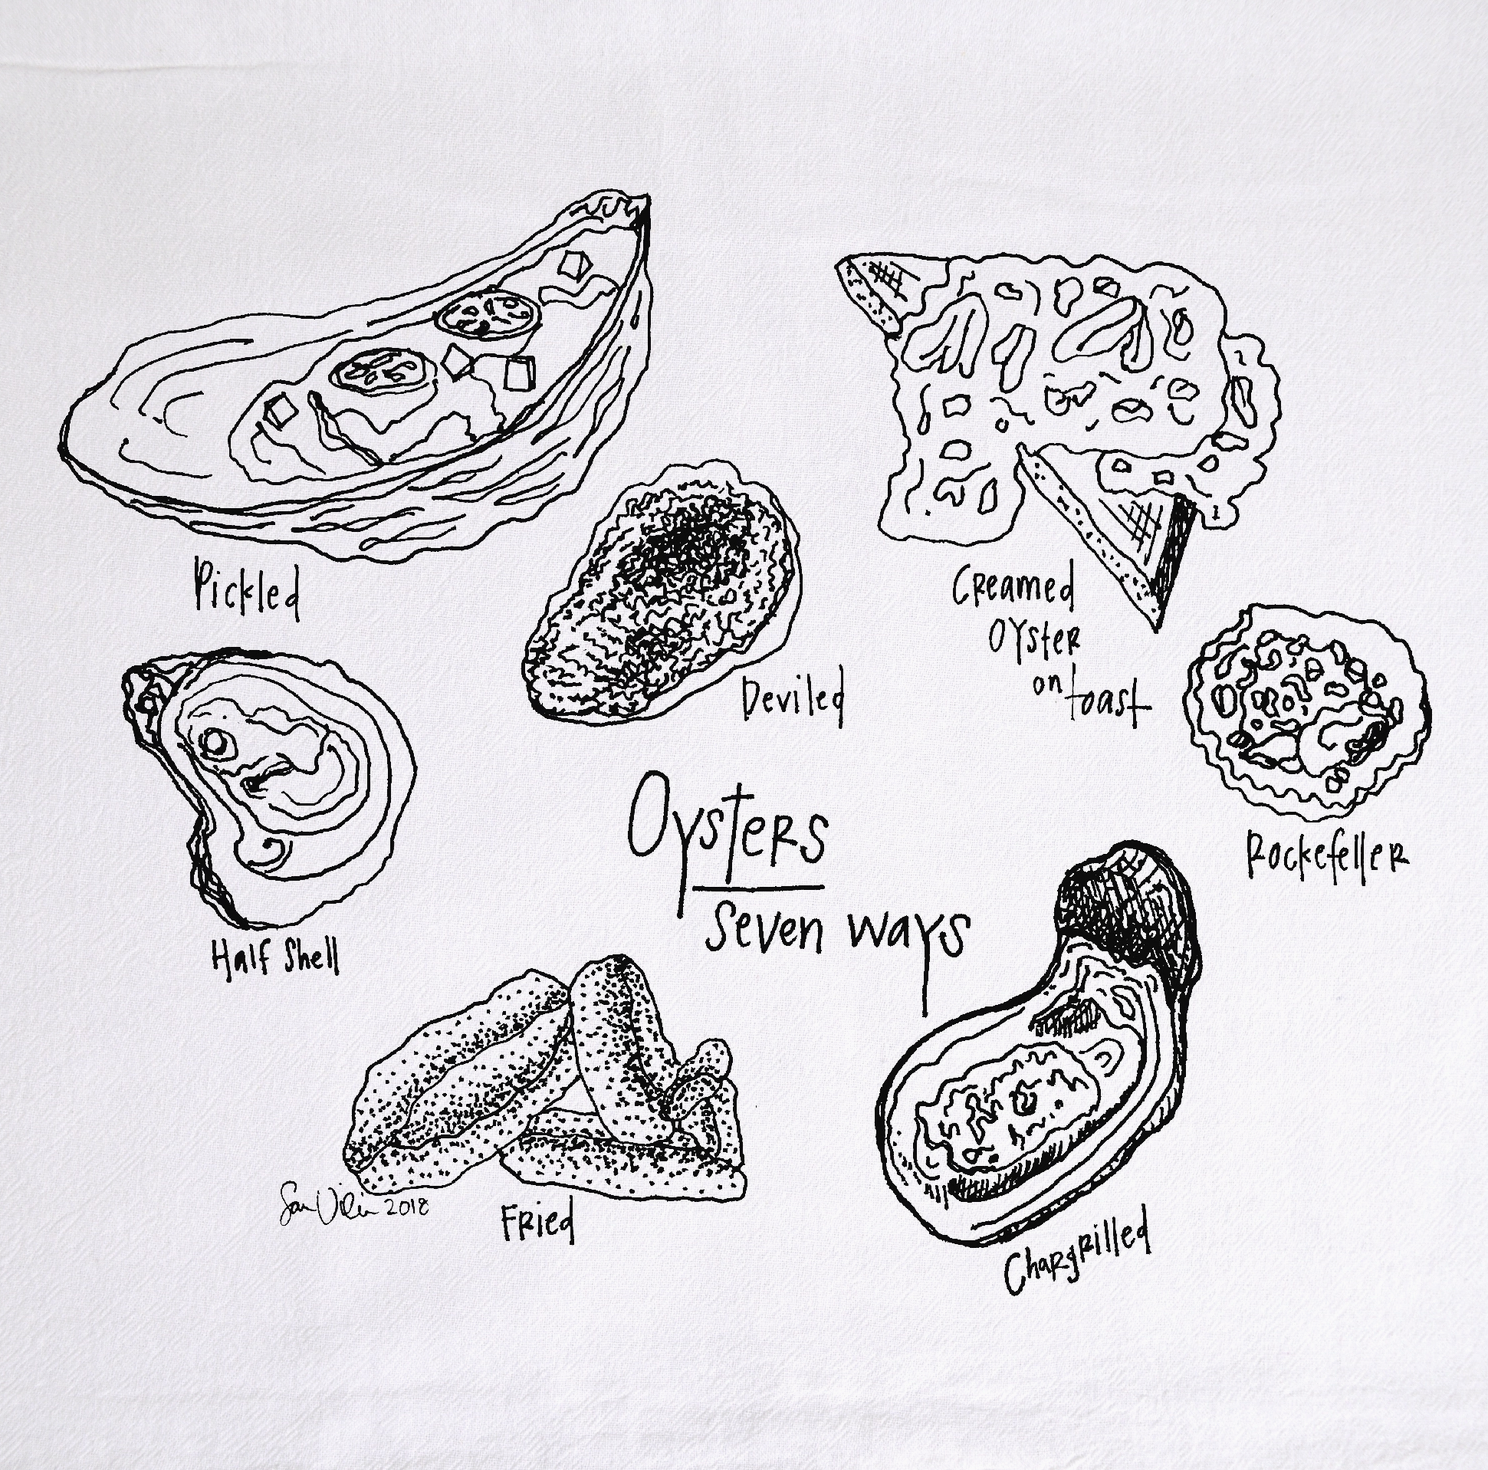 Pickled
Creamed
Oyster
on toast
Deviled
Rockefeller
Half Shell
Oysters
seven ways
2018
Fried
Chargrilled